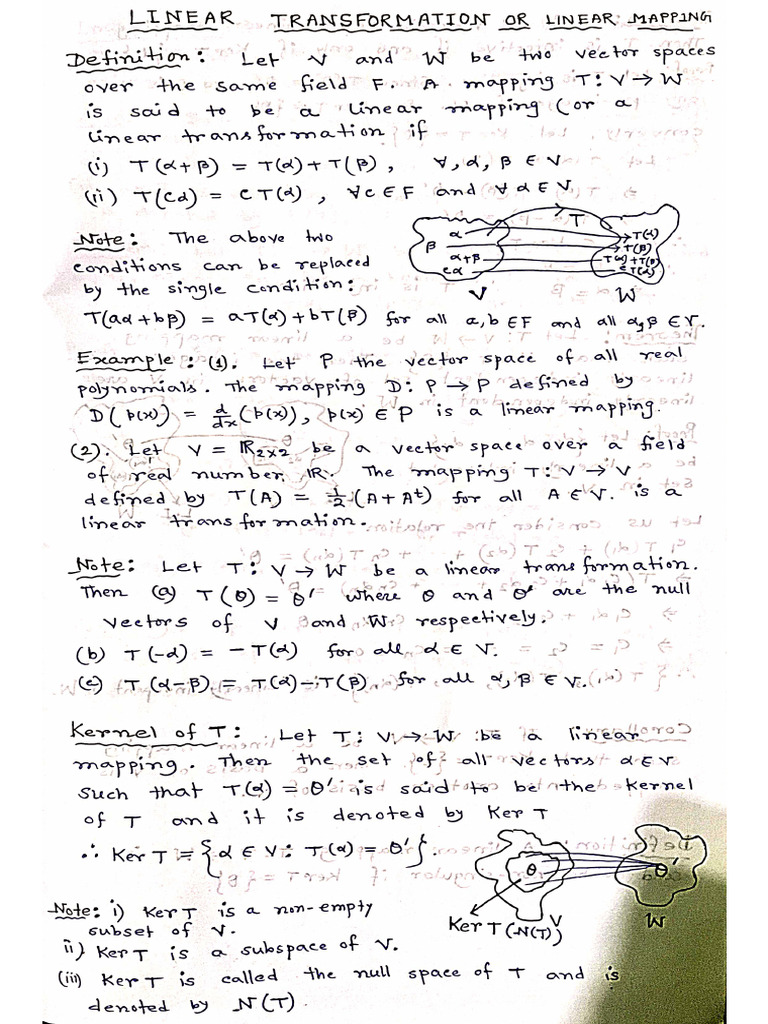 LINEAR TRANSFORMATION OR LINEAR MAPPING
Definition: Let V and W be two vector spaces
over the same field F. A mapping T: V → W
is said to be a linear mapping (or a
linear transformation if
(i) T(α+β) = T(α)+T(β), ∀, α, β ∈ V
(ii) T(cα) = cT(α), ∀c ∈ F and ∀ α ∈ V.
Note: The above two
conditions can be replaced
by the single condition:
T(aα+bβ) = aT(α)+bT(β) for all a, b ∈ F and all α, β ∈ V.
T
α
β
α+β
cα
T(α)
T(β)
T(α)+T(β)
cT(α)
V W
Example: (1). Let P the vector space of all real
polynomials. The mapping D: P → P defined by
D(p(x)) = d/dx (p(x)), p(x) ∈ P is a linear mapping.
(2). Let V = ℝ2×2 be a vector space over a field
of real number ℝ. The mapping T: V → V
defined by T(A) = 1/2 (A+Aᵗ) for all A ∈ V. is a
linear transformation.
Note: Let T: V → W be a linear transformation.
Then (a) T(θ) = θ' where θ and θ' are the null
vectors of V and W respectively.
(b) T(-α) = -T(α) for all α ∈ V.
(c) T(α-β) = T(α)-T(β) for all α, β ∈ V.
Kernel of T: Let T: V → W be a linear
mapping. Then the set of all vectors α ∈ V
such that T(α) = θ' is said to be the kernel
of T and it is denoted by Ker T
∴ Ker T = {α ∈ V: T(α) = θ'}
θ θ'
Ker T (N(T)) V W
Note: i) Ker T is a non-empty
subset of V.
ii) Ker T is a subspace of V.
(iii) Ker T is called the null space of T and is
denoted by N(T).